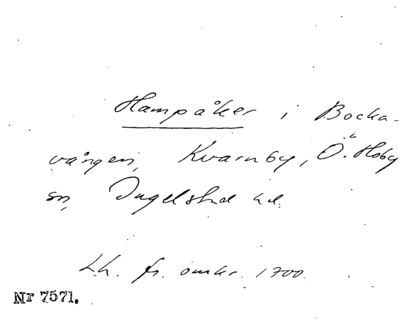 Hampåker i Bocka-
vången, Kvarnby, Ö. Hoby
sn, Ingelstad hd.
Lh. fr. omkr. 1700.
Nr 7571.